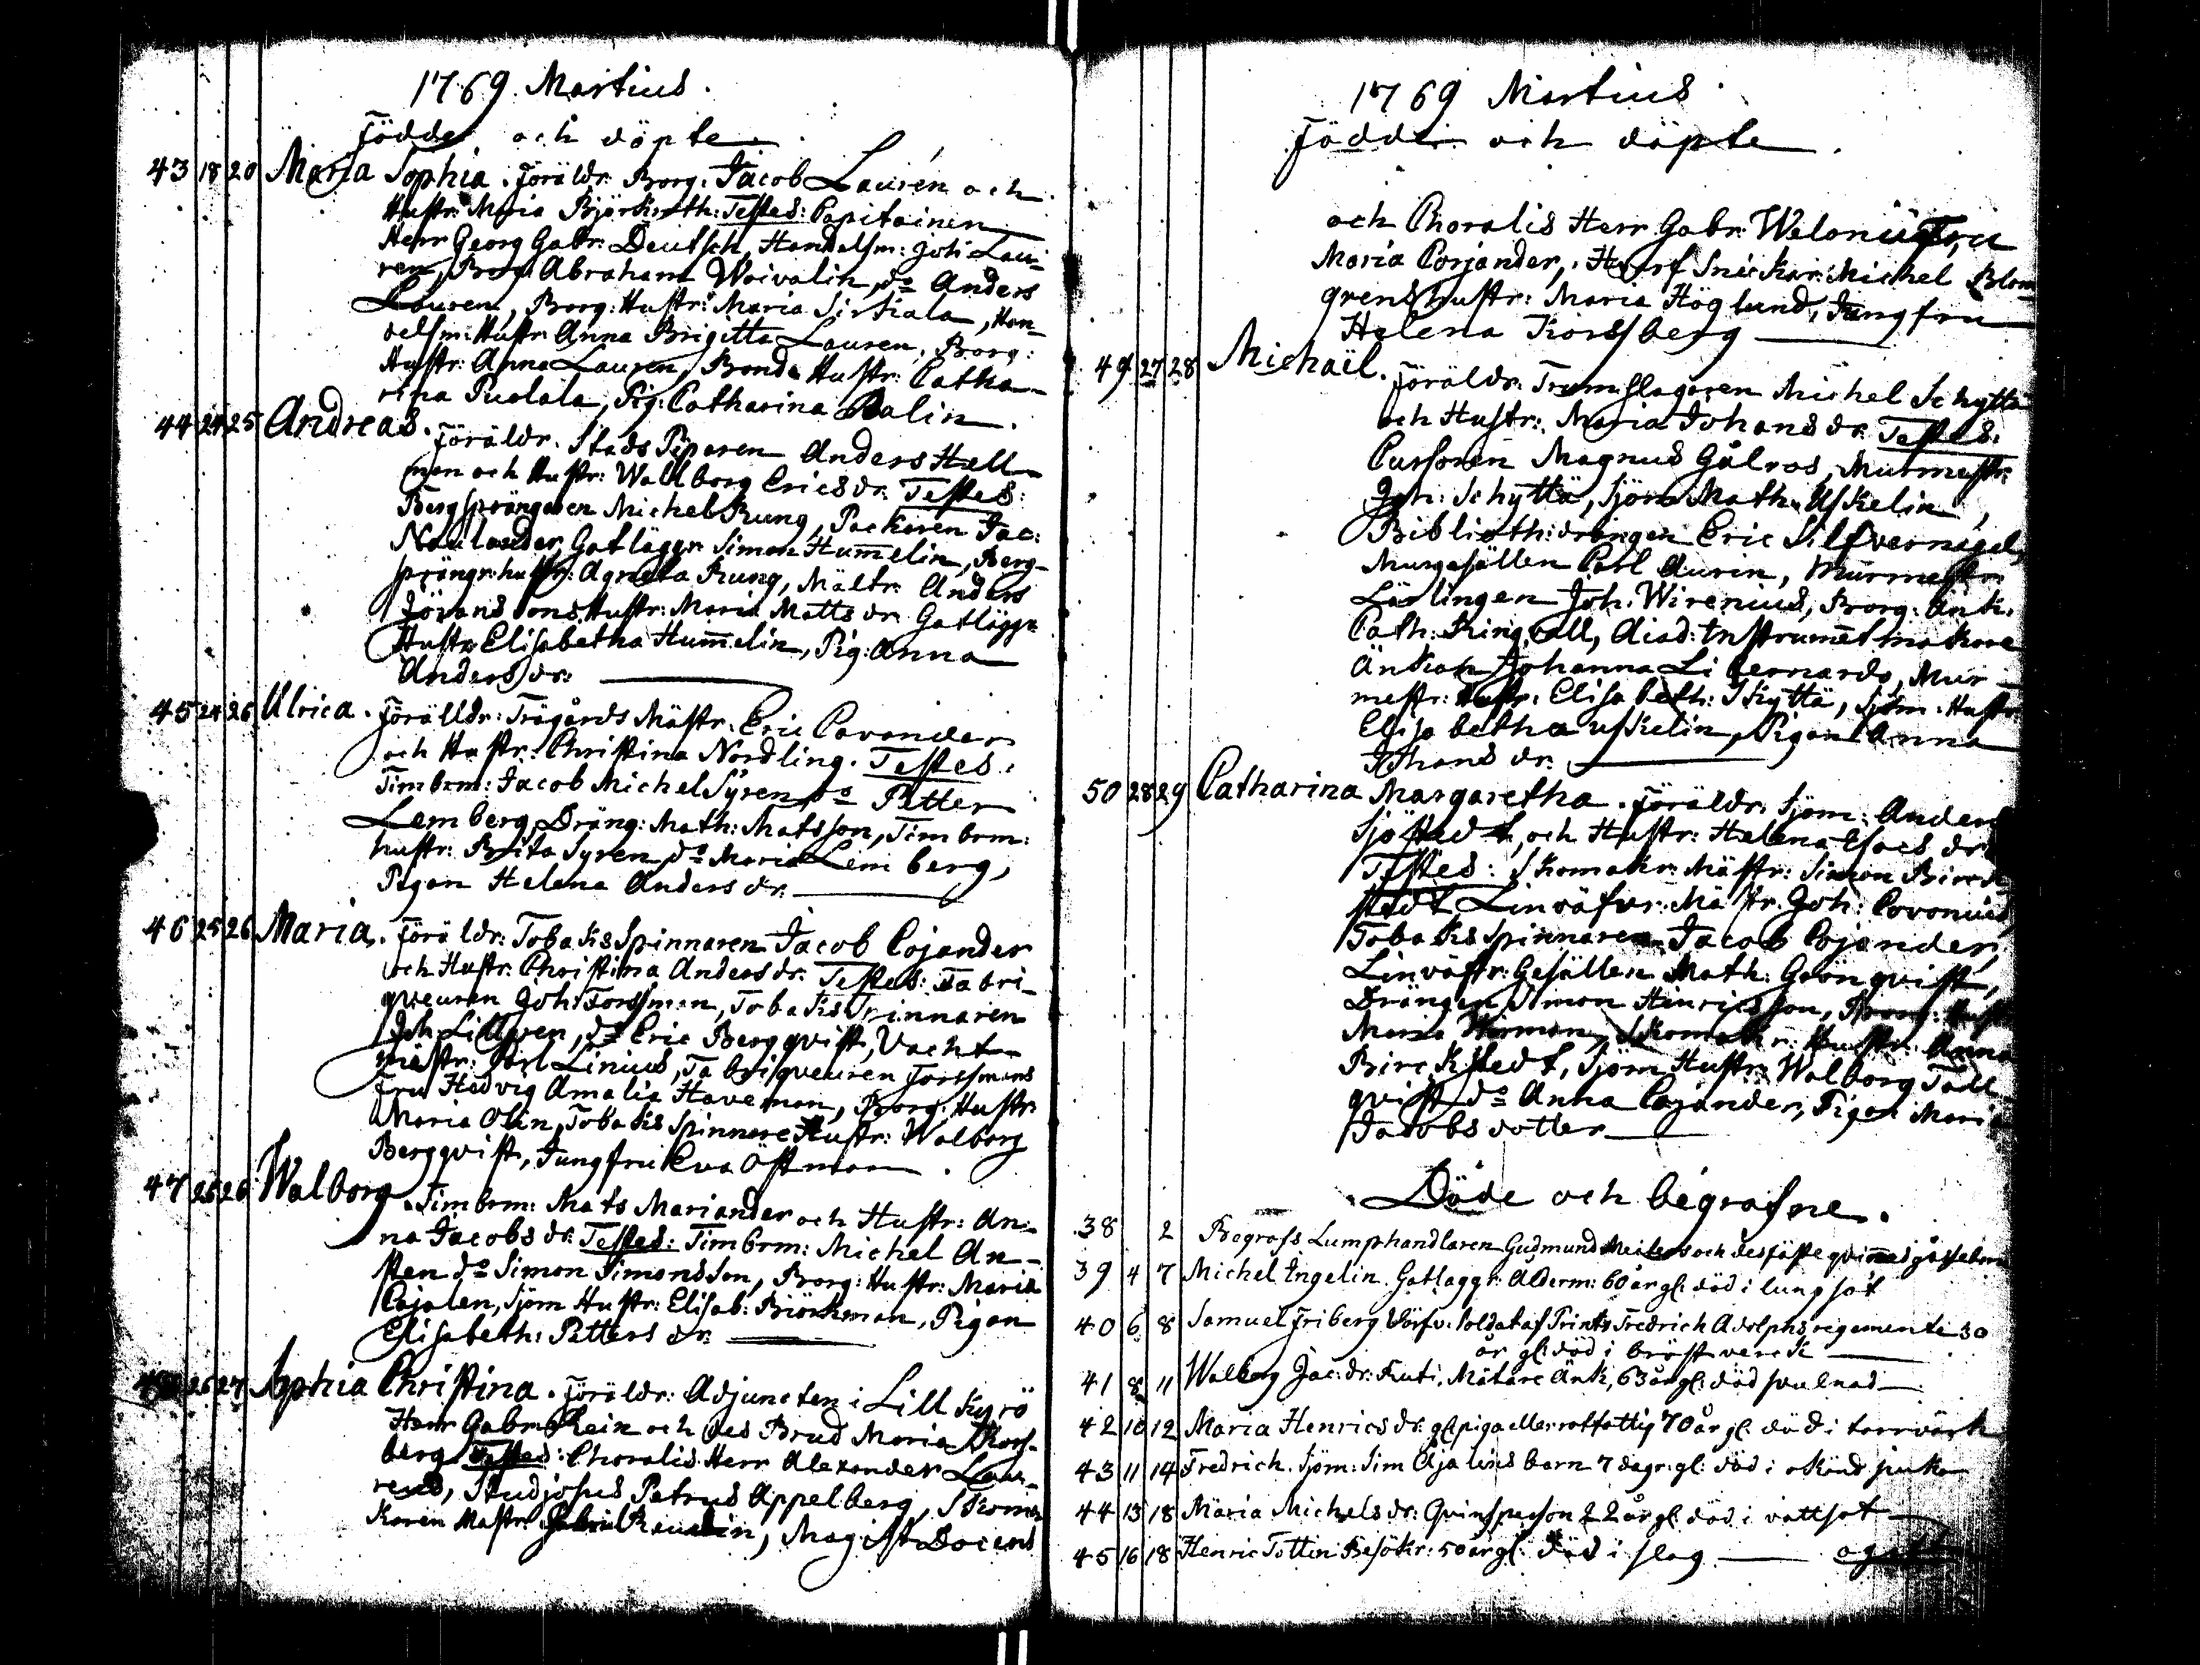 1769 Martius.
Födde och döpte.
43 18 20 Maria Sophia. Föräldr. Borg. Jacob Laurén och
Hustr: Maria Björkroth: Testes: Capitainen
Herr Georg Gabr: Deutsch, Handelsm: Joh: Lau-
ren, Borg: Abraham Woivalin, do Anders
Lauren, Borg: Hustr: Maria Sirkiala, Han-
delsm: Hustr: Anna Brigitta Lauren, Borg:
Hustr: Anna Lauren, Bonde Hustr: Catha-
rina Puolala, Pig: Catharina Palin.
44 24 25 Andreas. Föräldr. Stads Piparen Anders Hell-
man och Hustr: Wallborg Erics dr. Testes:
Bergsprängaren Michel Rung, Packaren Jac:
Naulander, Gatläggr. Simon Hum̅elin, Berg-
sprängr: hustr: Agneta Rung, Mältr: Anders
Jöransons Hustr: Maria Matts dr. Gatläggr.
Hustr: Elisabetha Hum̅elin, Pig: Anna
Anders dr.
45 24 26 Ulrica. Förälldr: Trägårds Mästr. Eric Cavander
och Hustr: Christina Nordling. Testes:
Timbrm: Jacob Michel Syren, do Petter
Lemberg, Dräng: Math: Matsson, Timbrm:
hustr: Brita Syren, do Maria Lemberg,
Pigan Helena Anders dr.
46 25 26 Maria. Föräldr: Tobaks Spinnaren Jacob Cojander
och Hustr: Christina Anders dr. Testes: Fabri-
queuren Joh: Forssman, Tobaks Spinnaren
Joh: Lillgren, do Eric Bergqvist, Vacht-
mästr: Carl Linius, Fabriqveuren Forssmans
Fru Hedvig Amalia Haveman, Borg: Hustr:
Maria Olin, Tobaks Spinnare Hustr: Walborg
Bergqvist, Jungfru Eva Östman.
47 26 26 Walborg. Timbrm: Mats Mariander och Hustr: An-
na Jacobs dr: Testes: Timbrm: Michel An-
sten do Simon Simonsson, Borg: Hustr: Maria
Cajalen, Sjöm Hustr: Elisab: Björkman, Pigan
Elisabeth: Petters dr.
48 26 27 Sophia Christina. Föräldr: Adjuncten i Lill Kyrö
Herr Gabr: Rein och Des Brud Maria Kors-
berg Testes: Choralis Herr Alexander Lau-
reus, Studiosus Petrus Appelberg, Skoma-
karen Mästr: Renalin, Magist Docens
1769 Martius
Födde och döpte.
och Choralis Herr Gabr. Welonius, Fru
Maria Corjander, Snickar: Michel Blom-
grens hustr: Maria Höglund, Jungfru
Helena Korssberg
49 27 28 Michaël. Föräldr. Trumslagaren Michel Schyttä
och Hustr: Maria Johans dr. Testes:
Cursoren Magnus Gålros, Murmestr:
Joh: Schyttä, Sjöm: Math: Uskelin,
Biblioth: drängen Eric Silfvernagel,
Murgesällen Carl Aurin, Murmestr:
Lärlingen Joh. Wirenius, Borg: Änk:
Cath: Ringvall, Acad: Instrum̅etmakare
Änkan Johanna Libernards, Mur-
mestr: Hustr. Elisabeth: Skyttä, Sjöm: Hustr
Elisabetha Uskelin, Pigan Anna
Johans dr.
50 28 29 Catharina Margaretha. Föräldr. Sjöm: Anders
Sjöstedt, och Hustr: Helena Esaes dr
Testes: Skomakr: Mästr: Simon Birck-
stedt Linväfvr: Mästr: Joh: Covonius
Tobaks Spinnaren Jacob Cojander,
Linväftr: Gesällen Math: Grönqvist,
Drängen Simon Henricsson, Borg: Hustr
Maria Skomakr: Hustr: Anna
Birckstedt, Sjöm Hustr: Walborg Tall-
qvist do Anna Cojander, Pigan Maria
Jacobs dotter
Döde och begrafne.
38 2 Begrofs Lumphandlaren Gudmund och des fäste qvin̅as
39 4 7 Michel Ingelin Gatlaggr: Ålderm: 60 år gl: död i lungsot
40 6 8 Samuel Friberg Värfv: Soldat af Prints Fredrich Adolphs regemente 30
år gl: död i bröstverck
41 8 11 Walborg Jac: dr. Kuti, Mätare Änk, 63 år gl: död svulnad
42 10 12 Maria Henrics dr. gl: piga eller rotfattig 70 år gl: död i torrvärk
43 11 14 Fredrich. Sjöm: Sim Ajalins barn 7 dagr gl: död i okänd sjuka
44 13 18 Maria Michels dr: Qvinsperson 22 år gl: död i vattsot
45 16 18 Henric Tottin Besökr: 50 år gl: död i slag